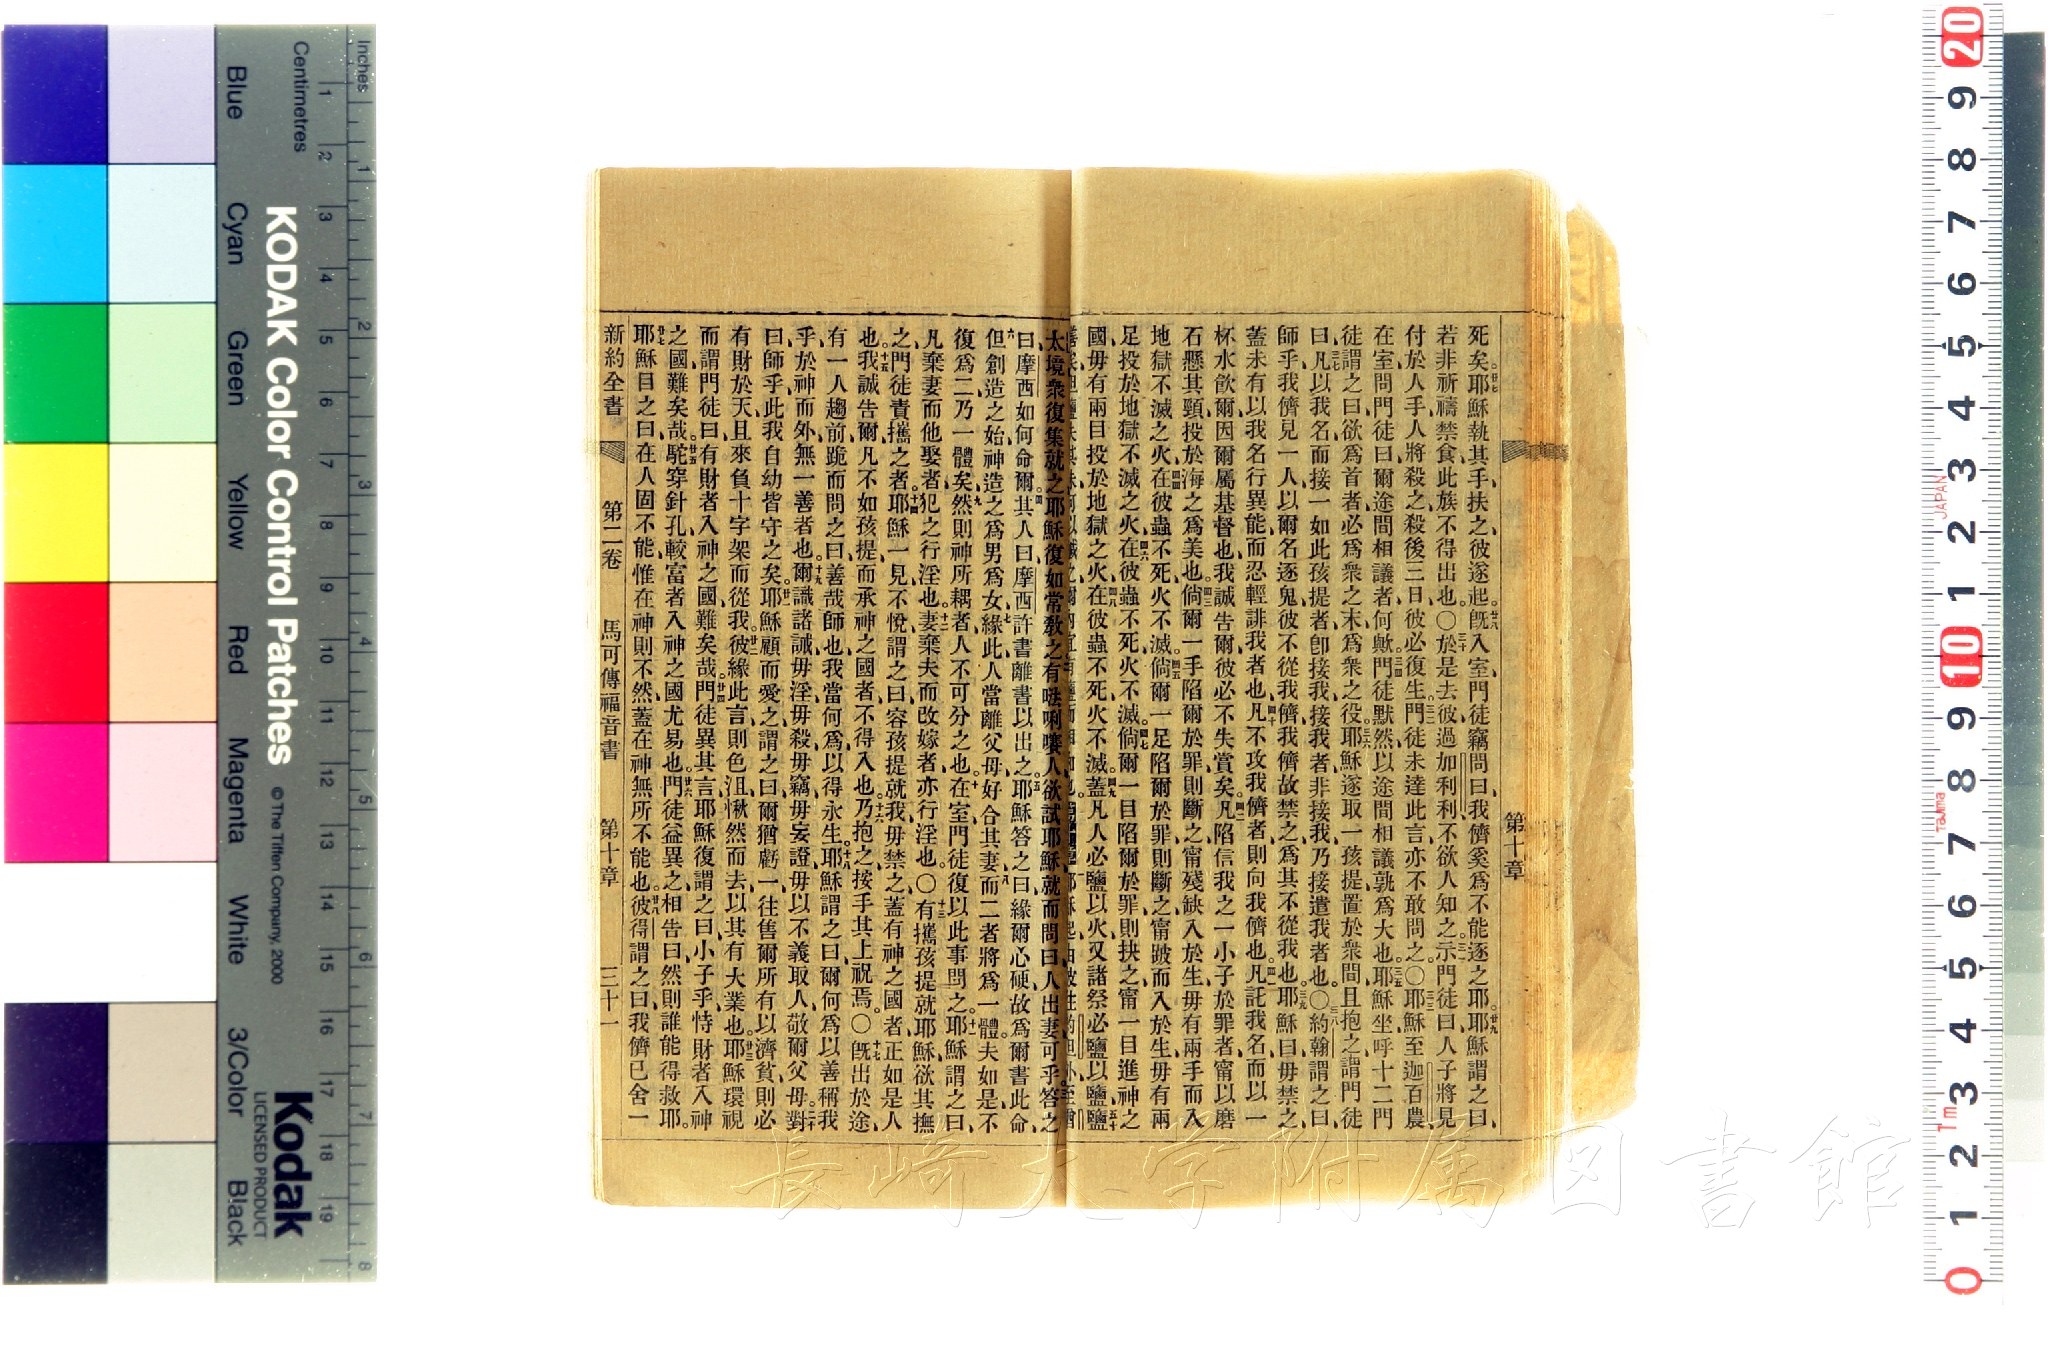 死矣耶穌執其手扶之彼遂起旣入室門徒竊問曰我儕奚爲不能逐之耶耶穌謂之曰
若非祈禱禁食此族不得出也〇於是去彼過加利利不欲人知之示門徒曰人子將見
付於人手人將殺之殺後三日彼必復生門徒未達此言亦不敢問之〇耶穌至迦百農
在室問門徒曰爾途間相議者何歟門徒默然以途間相議孰爲大也耶穌坐呼十二門
徒謂之曰欲爲首者必爲衆之末爲衆之役耶穌遂取一孩提置於衆間且抱之謂門徒
曰凡以我名而接一如此孩提者卽接我接我者非接我乃接遣我者也〇約翰謂之曰
師乎我儕見一人以爾名逐鬼彼不從我儕我儕故禁之爲其不從我也耶穌曰毋禁之
蓋未有以我名行異能而忍輕誹我者也凡不攻我儕者則向我儕也凡託我名而以一
杯水飮爾因爾屬基督也我誠告爾彼必不失賞矣凡陷信我之一小子於罪者甯以磨
石懸其頸投於海之爲美也倘爾一手陷爾於罪則斷之甯殘缺入於生毋有兩手而入
地獄不滅之火在彼蟲不死火不滅倘爾一足陷爾於罪則斷之甯跛而入於生毋有兩
足投於地獄不滅之火在彼蟲不死火不滅倘爾一目陷爾於罪則抉之甯一目進神之
國毋有兩目投於地獄之火在彼蟲不死火不滅蓋凡人必鹽以火又諸祭必鹽以鹽鹽
第十章
太境衆復集就之耶穌復如常敎之有𠵽唎㘔人欲試耶穌就而問曰人出妻可乎答之
曰摩西如何命爾其人曰摩西許書離書以出之耶穌答之曰緣爾心硬故爲爾書此命
但創造之始神造之爲男爲女緣此人當離父母好合其妻而二者將爲一體夫如是不
復爲二乃一體矣然則神所耦者人不可分之也在室門徒復以此事問之耶穌謂之曰
凡棄妻而他娶者犯之行淫也妻棄夫而改嫁者亦行淫也〇有攜孩提就耶穌欲其撫
之門徒責攜之者耶穌一見不悅謂之曰容孩提就我毋禁之蓋有神之國者正如是人
也我誠告爾凡不如孩提而承神之國者不得入也乃抱之按手其上祝焉〇旣出於途
有一人趨前跪而問之曰善哉師也我當何爲以得永生耶穌謂之曰爾何爲以善稱我
乎於神而外無一善者也爾識諸誡毋淫毋殺毋竊毋妄證毋以不義取人敬爾父母對
曰師乎此我自幼皆守之矣耶穌顧而愛之謂之曰爾猶虧一往售爾所有以濟貧則必
有財於天且來負十字架而從我彼緣此言則色沮愀然而去以其有大業也耶穌環視
而謂門徒曰有財者入神之國難矣哉門徒異其言耶穌復謂之曰小子乎恃財者入神
之國難矣哉駝穿針孔較富者入神之國尤易也門徒益異之相告曰然則誰能得救耶
耶穌目之曰在人固不能惟在神則不然蓋在神無所不能也彼得謂之曰我儕已舍一
新約全書 第二卷 馬可傳福音書 第十章 三十一
Inches
Centimetres
KODAK Color Control Patches © The Tiffen Company, 2000
Kodak
LICENSED PRODUCT
Blue Cyan Green Yellow Red Magenta White 3/Color Black
JAPAN
Tajima
長崎大学附属図書館